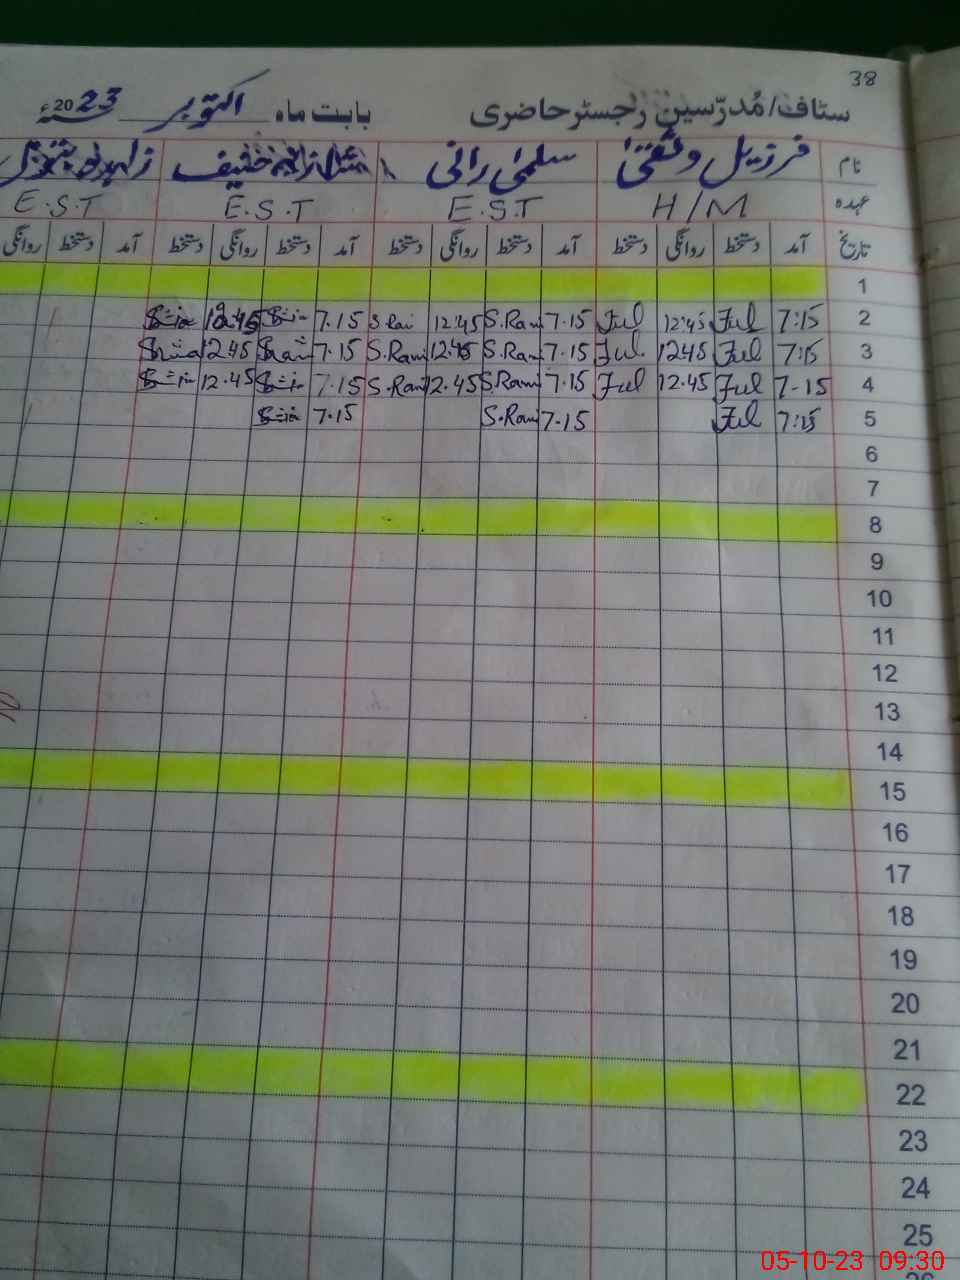 38
سٹاف/مُدرّسین رجسٹر حاضری بابت ماہ اکتوبر 2023ء
نام سلمیٰ رانی حنیف
عہدہ H/M E.S.T E.S.T E.S.T
تاریخ آمد دستخط روانگی دستخط آمد دستخط روانگی دستخط آمد دستخط روانگی دستخط آمد دستخط روانگی
1
2 7:15 Ful 12:45 Ful 7.15 S.Rani 12:45 7.15 12.45
3 7:15 Ful 1245 Ful. 7.15 S.Rani 12.45 S.Rani 7.15 1245
4 7-15 Ful 12.45 Ful 7.15 S.Rani 12.45 S.Rani 7.15 12.45
5 7:15 Ful 7-15 S.Rani 7.15
6
7
8
9
10
11
12
13
14
15
16
17
18
19
20
21
22
23
24
25
05-10-23 09:30